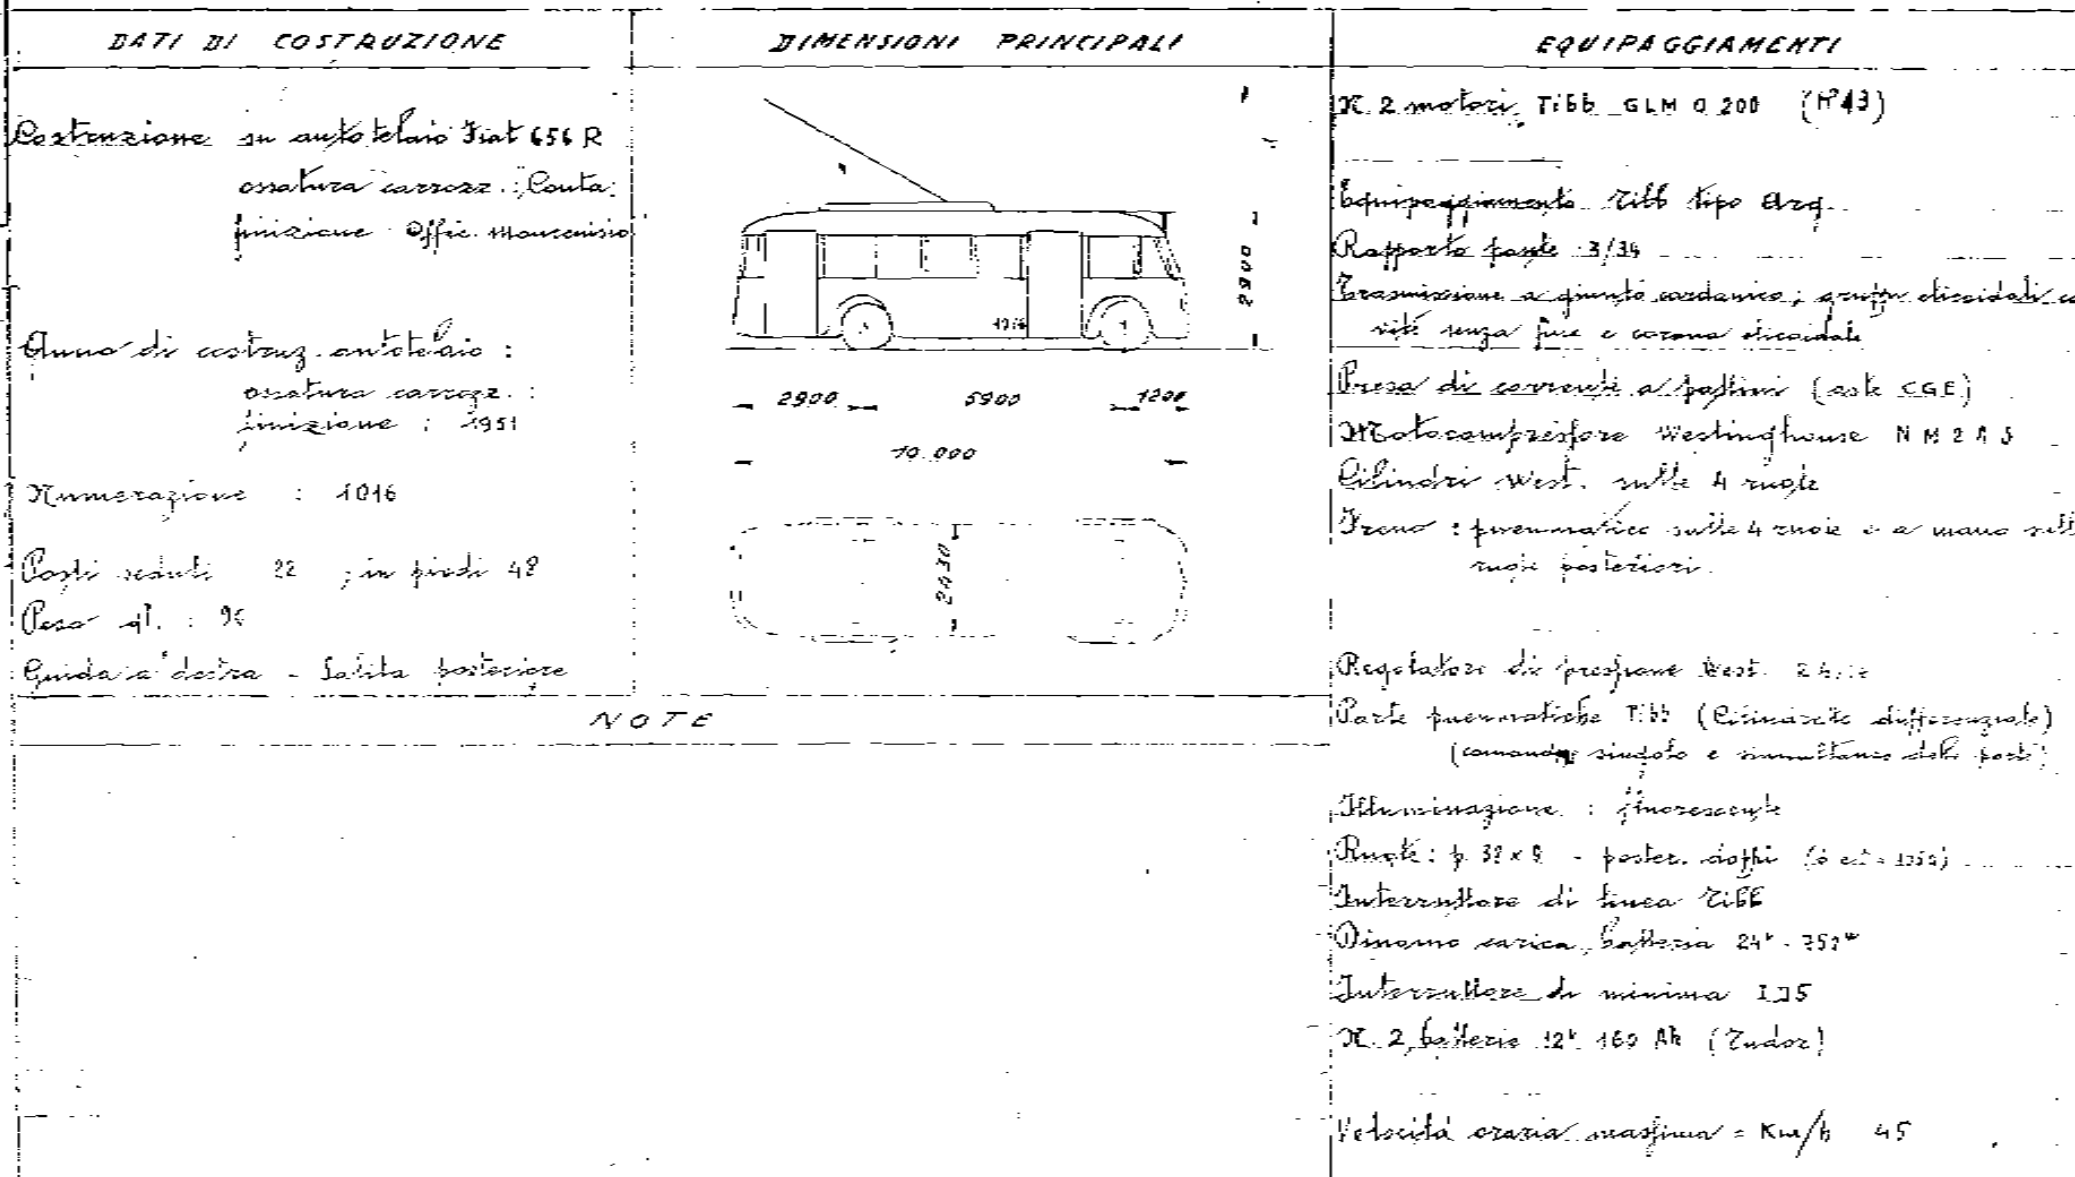 DATI DI COSTRUZIONE
Costruzione su autotelaio Fiat 656 R
ossatura carrozz.: Canta:
finizione Offic. Moncenisio
Anno di costruz. autotelaio :
ossatura carrozz. :
finizione : 1951
Numerazione : 1016
Posti seduti 22 ; in piedi 48
Peso ql. :
Guida a destra - Salita posteriore
DIMENSIONI PRINCIPALI
1016
2900
2900 5900 1200
10.000
2430
NOTE
EQUIPAGGIAMENTI
N. 2 motori Tibb GLM 0200 (N° 43)
Equipaggiamento Tibb tipo
Rapporto ponte 3/34
Trasmissione a giunto cardanico; gruppi elicoidali
vite senza fine e corona elicoidale
Presa di corrente a pattini (aste CGE)
Motocompressore Westinghouse
Cilindri West. sulle 4 ruote
Freno : pneumatico sulle 4 ruote e a mano
ruote posteriori.
Regolatore di pressione West.
Parte pneumatiche Tibb (Cilindretto differenziale)
(comando singolo e simultaneo delle porte)
Illuminazione : fluorescente
Ruote : - poster. doppi
Interruttore di linea Tibb
Dinamo carica batteria 24v - 750w
Interruttore di minima
N. 2 batterie 12v 160 Ah (Tudor)
Velocità oraria massima = Km/h 45